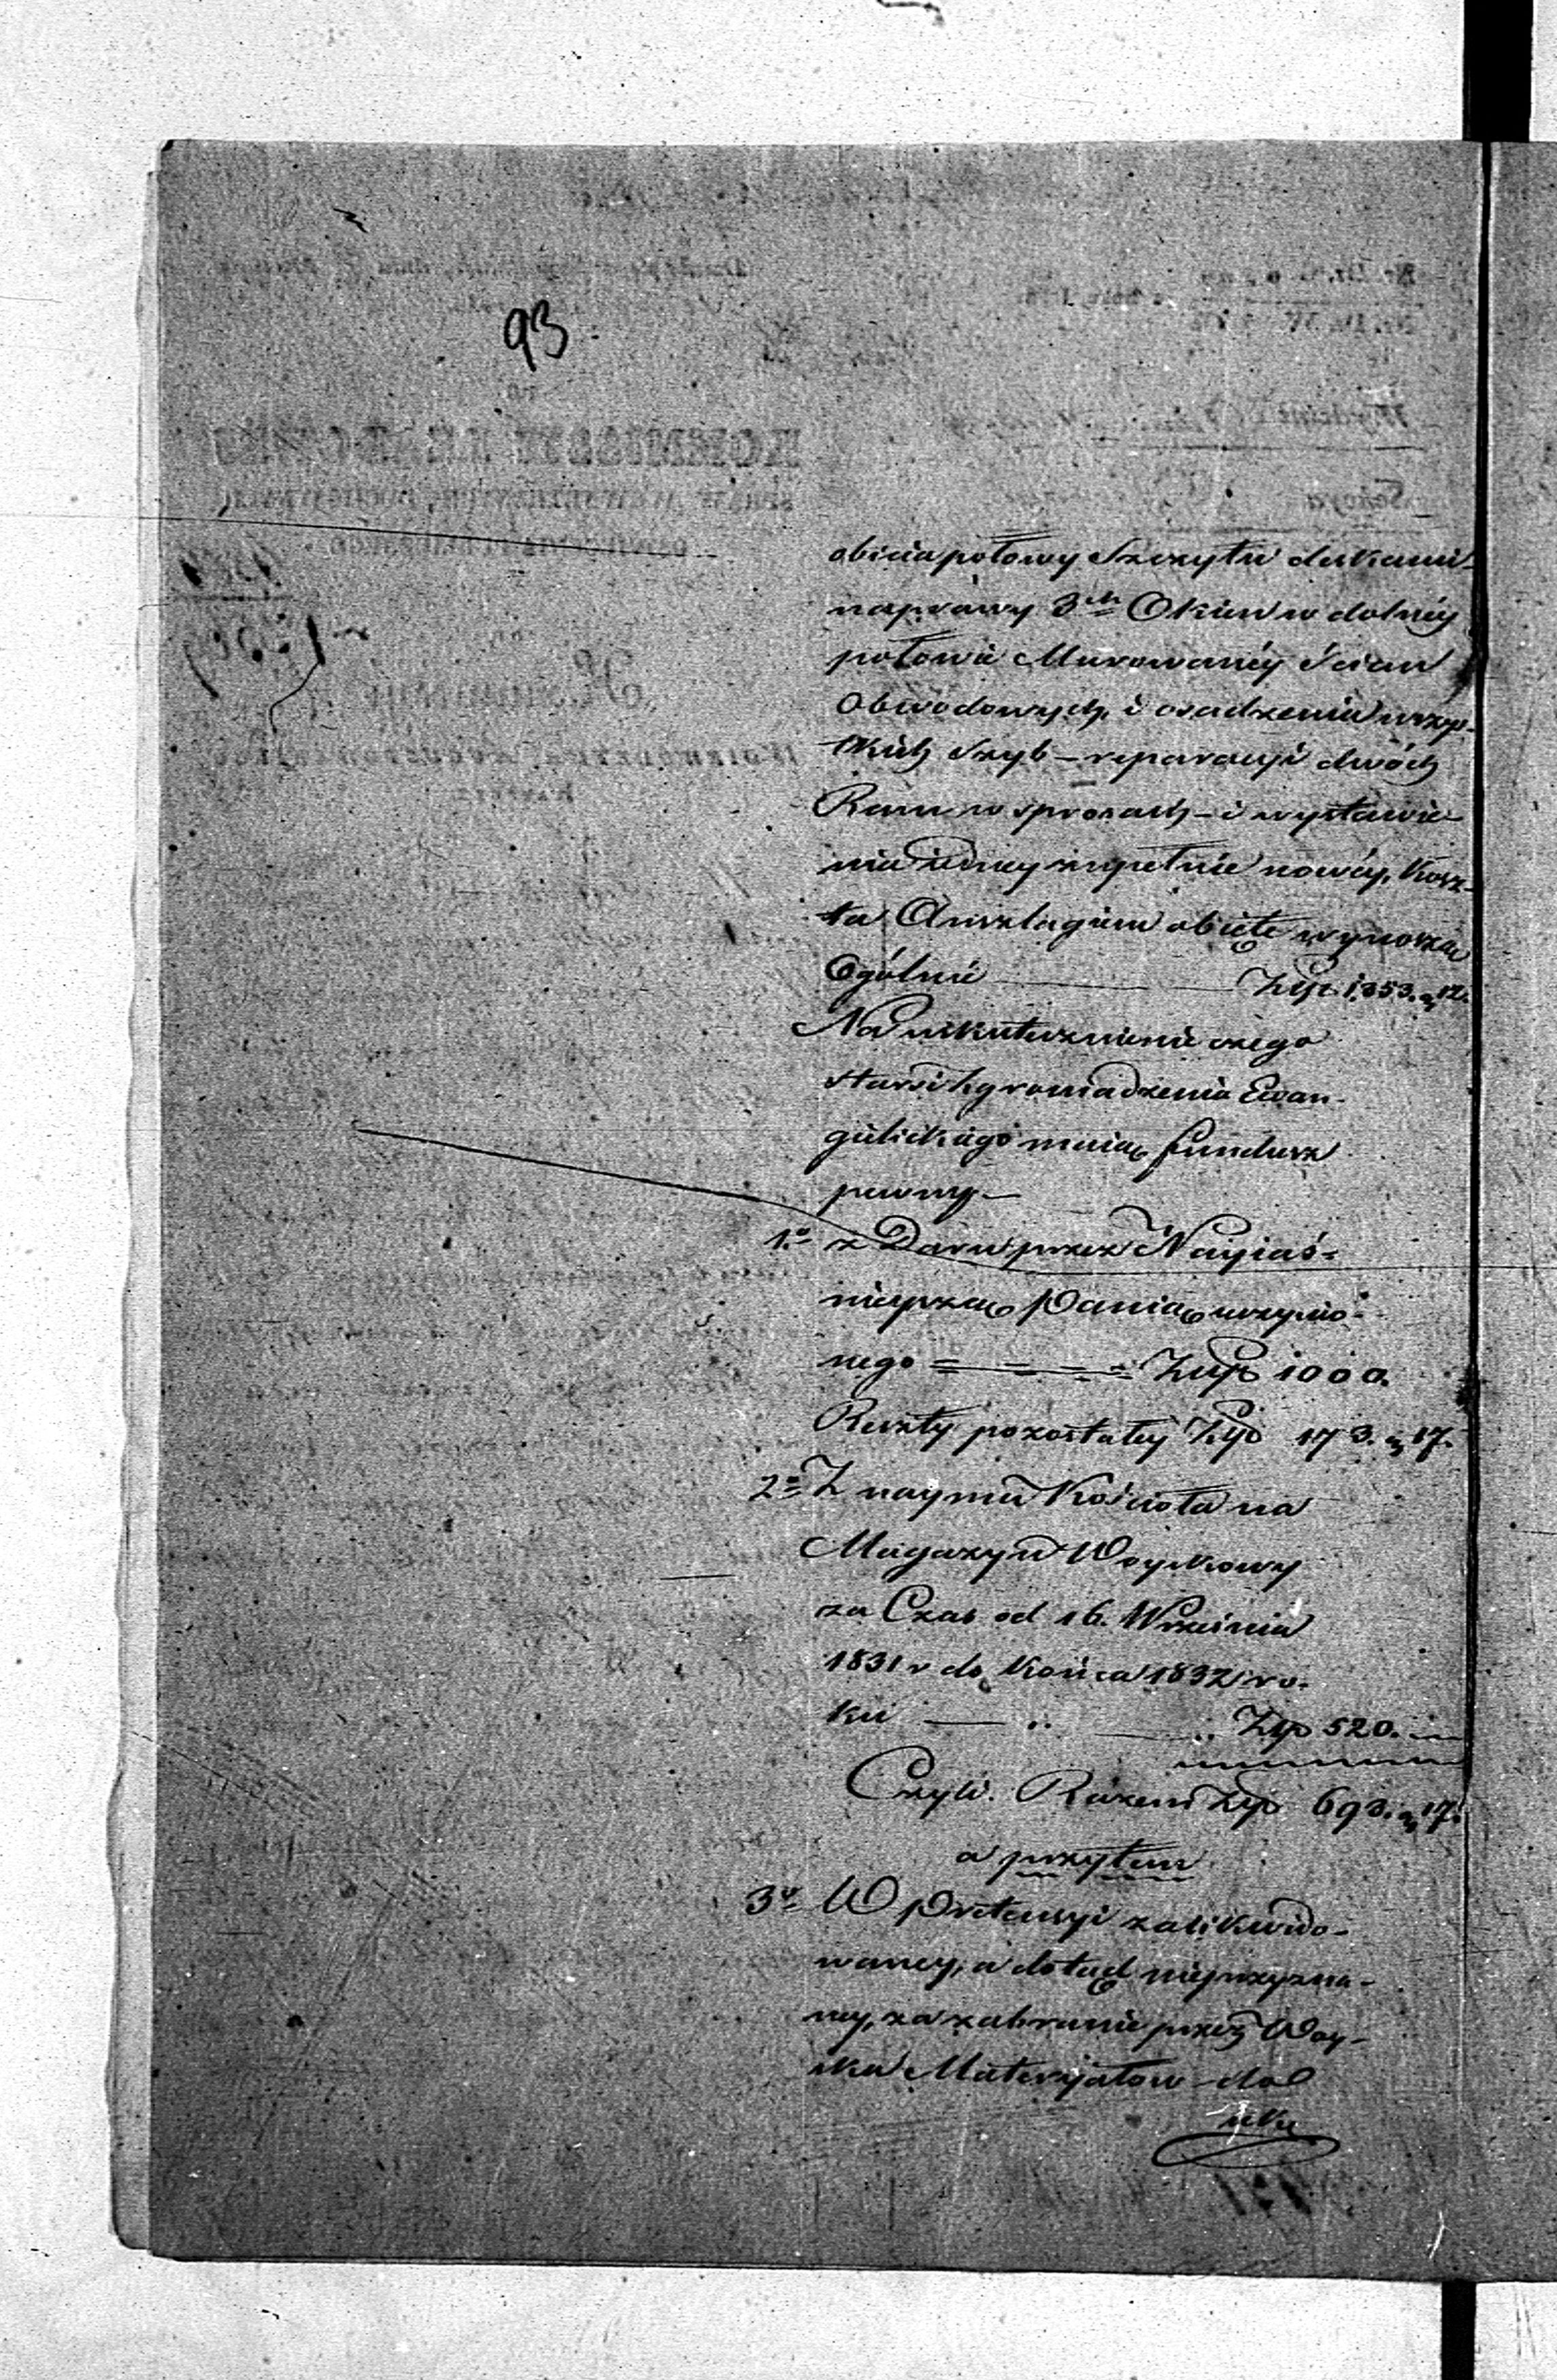 93
obicia połowy Szczytu deskami
naprawy 3ch Okien w dolnéy
połowie Murowanéy Ścian
Obwodowych, i osadzenia wszy-
stkich Szyb – reparacyi dwóch
Ram w sprosach – i wystawie-
nia iedney zupełnie nowéy, Kosz-
ta Anszlagiem obięte wynoszą
Ogólnie Złp 1,353. g 12.
Na uskutecznienie czego
starsi Zgromadzenia Ewan-
gielickiego maią fundusz
pewny –
1o z Daru przez Nayiaś-
nieyszą Panią uczynio-
nego Złp 1000.
Reszty pozostałey Złp 173. g 17.
2o Z naymu Kościoła na
Magazyn Woyskowy
za Czas od 16. Września
1831 r do Końca 1832 ro-
ku Złp 520. –
Czyli. Razem Złp 693. g 17.
a przytem
3o W Pretensyi zalikwido-
waney, a dotąd nieprzyzna-
ney, za zabranie przez Woy-
ska Materyałow do